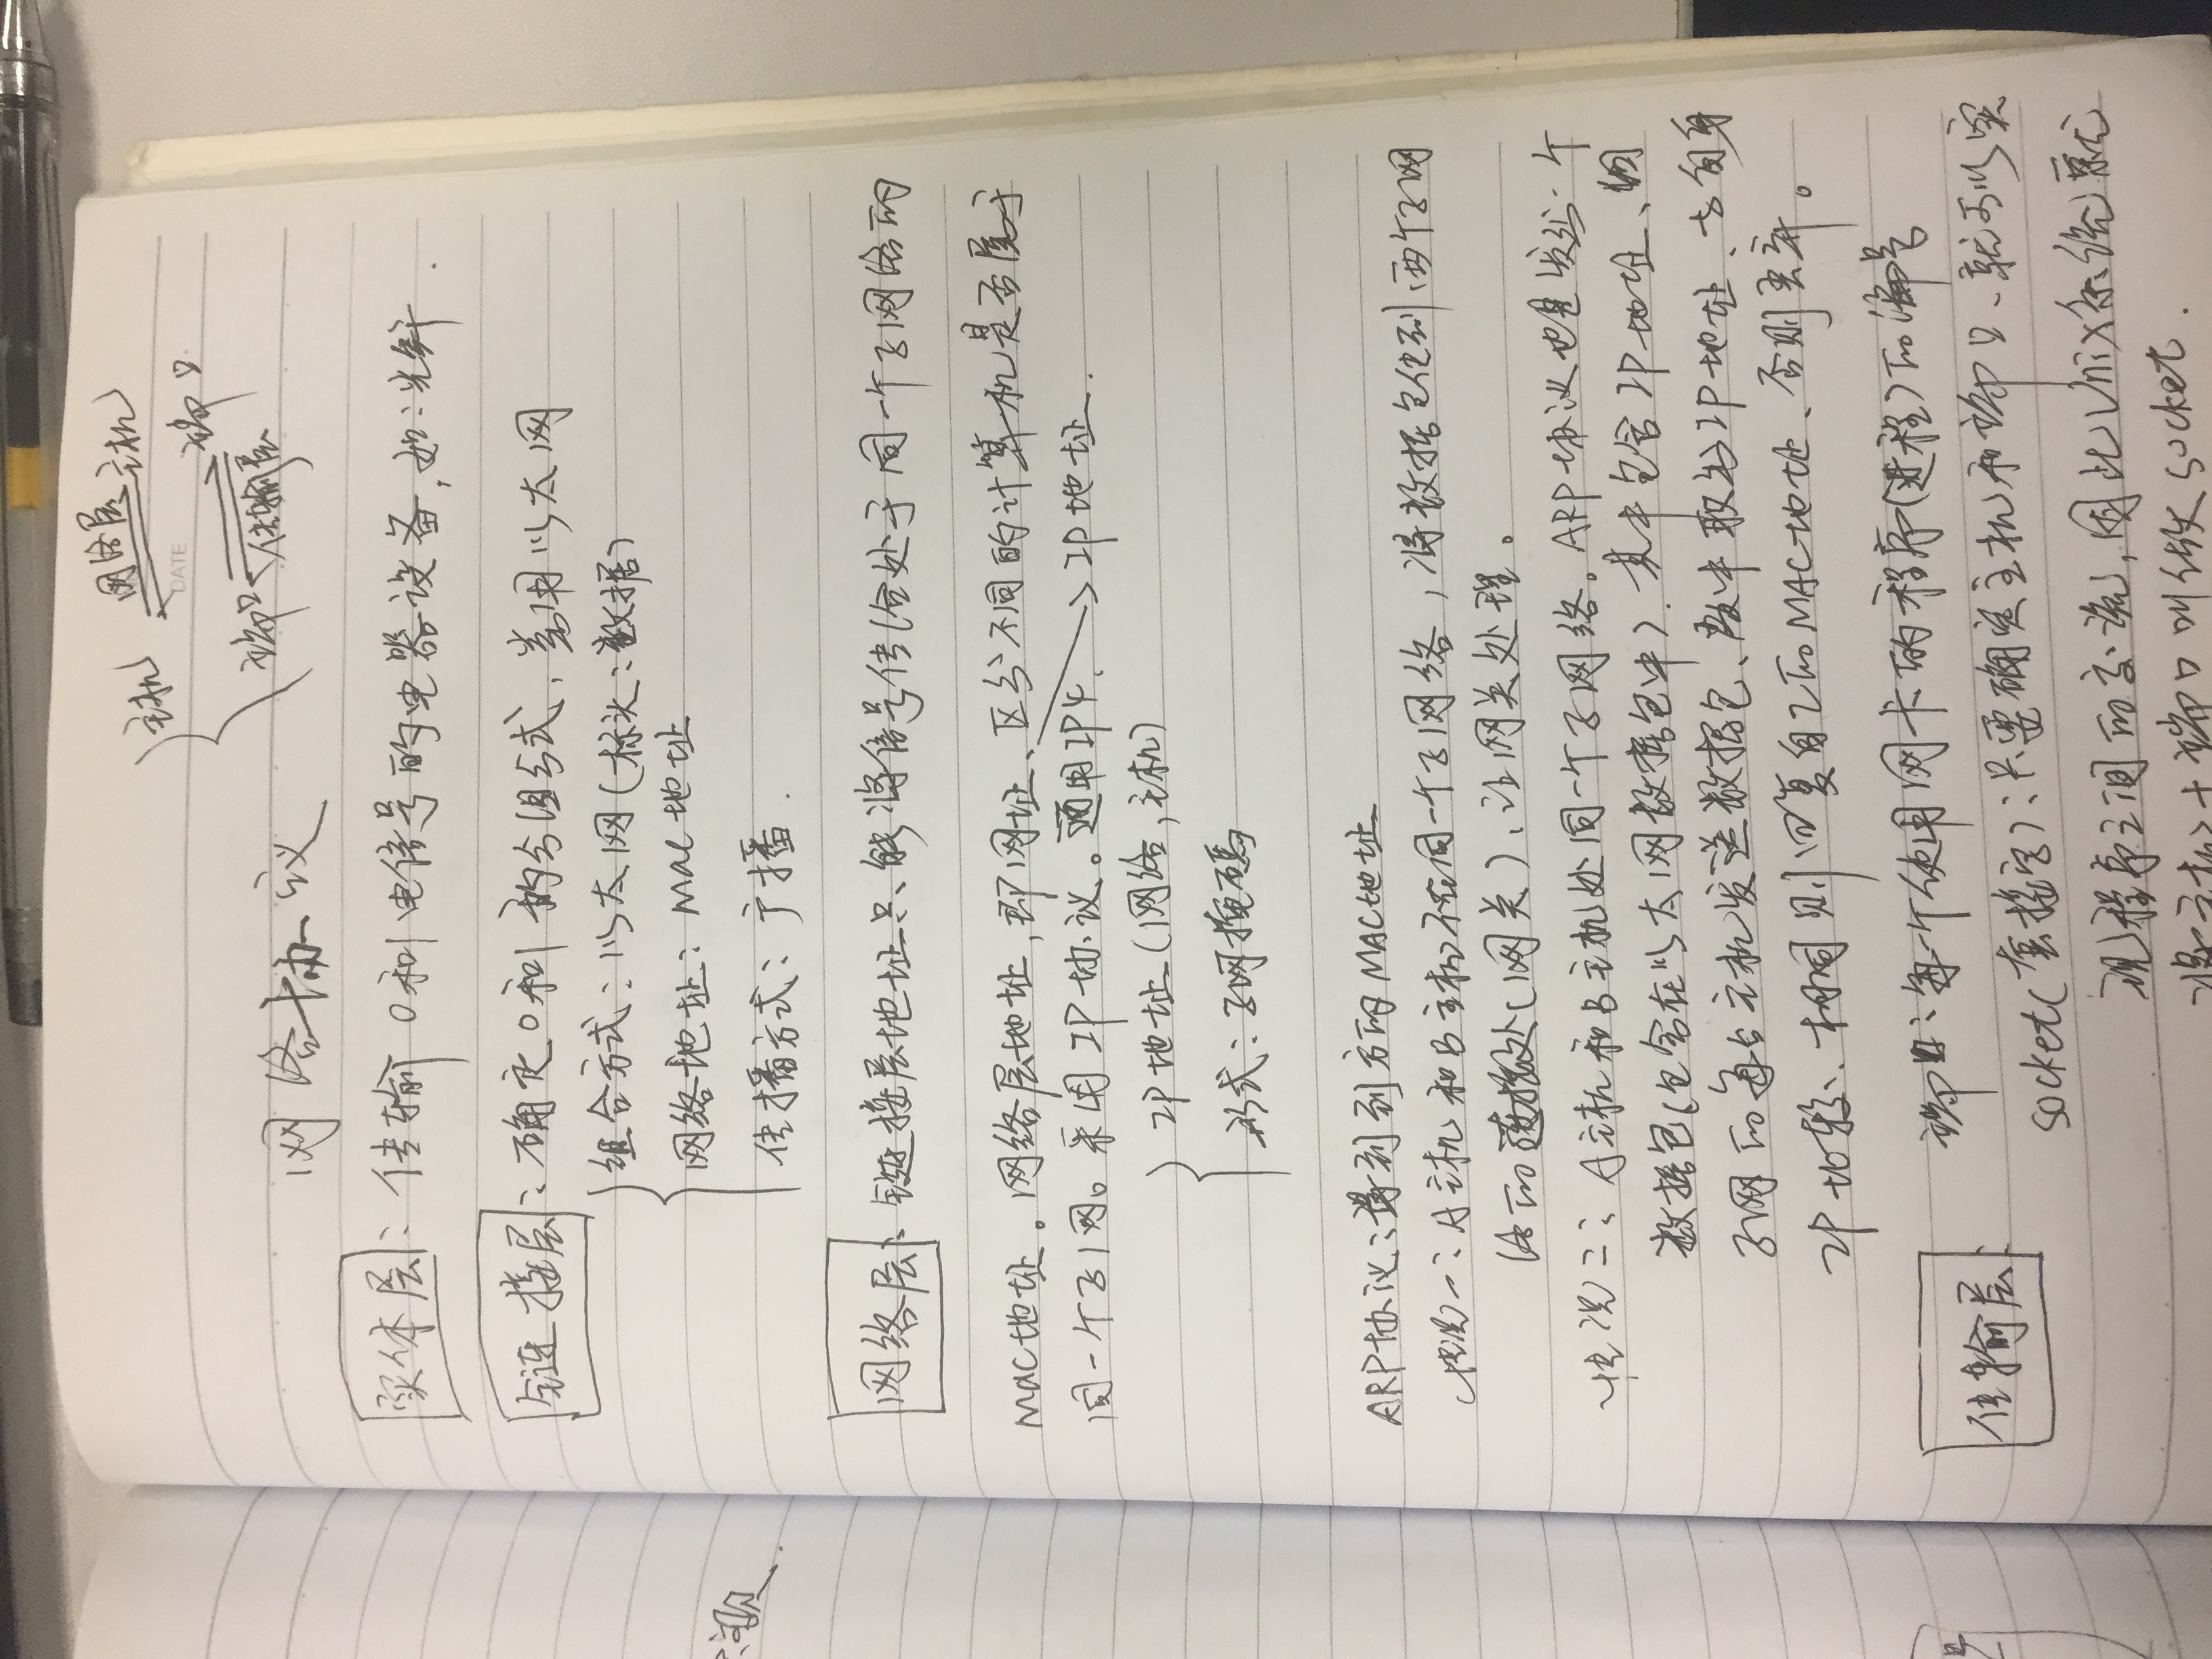 主机 网络层 主机
DATE
端口 传输层 端口
网络协议
实体层：传输0和1电信号的电器设备，如：光纤.
链接层：确定0和1的分组方式，常用以太网
组合方式：以太网（标头：数据）
网络地址：MAC地址
传播方式：广播.
网络层：链接层地址只能将信号传给处于同一个子网络的
MAC地址。网络层地址，即网址、区分不同的计算机是否属于
同一个子网。采用IP协议。通用IP4. → IP地址.
IP地址（网络，主机）
形式：子网掩码
ARP协议：得到到方的MAC地址
情况一：A主机和B主机不在同一个子网络，将数据包传到两个子网
络的连接处（网关），让网关处理。
情况二：A主机和B主机处同一个子网络。ARP协议也是发送一个
数据包（包含在以太网数据包中）.其中包含IP地址、
子网的每台主机发送数据包、取出IP地址、与自身
IP比较、相同则回复自己的MAC地址、否则丢弃。
端口：每一个使用网卡的程序（进程）的编号
传输层：
socket（套接字）：只要确定主机和端口、就可以实
现程序之间的交流，因此Unix系统就
将主机+端口叫做socket.